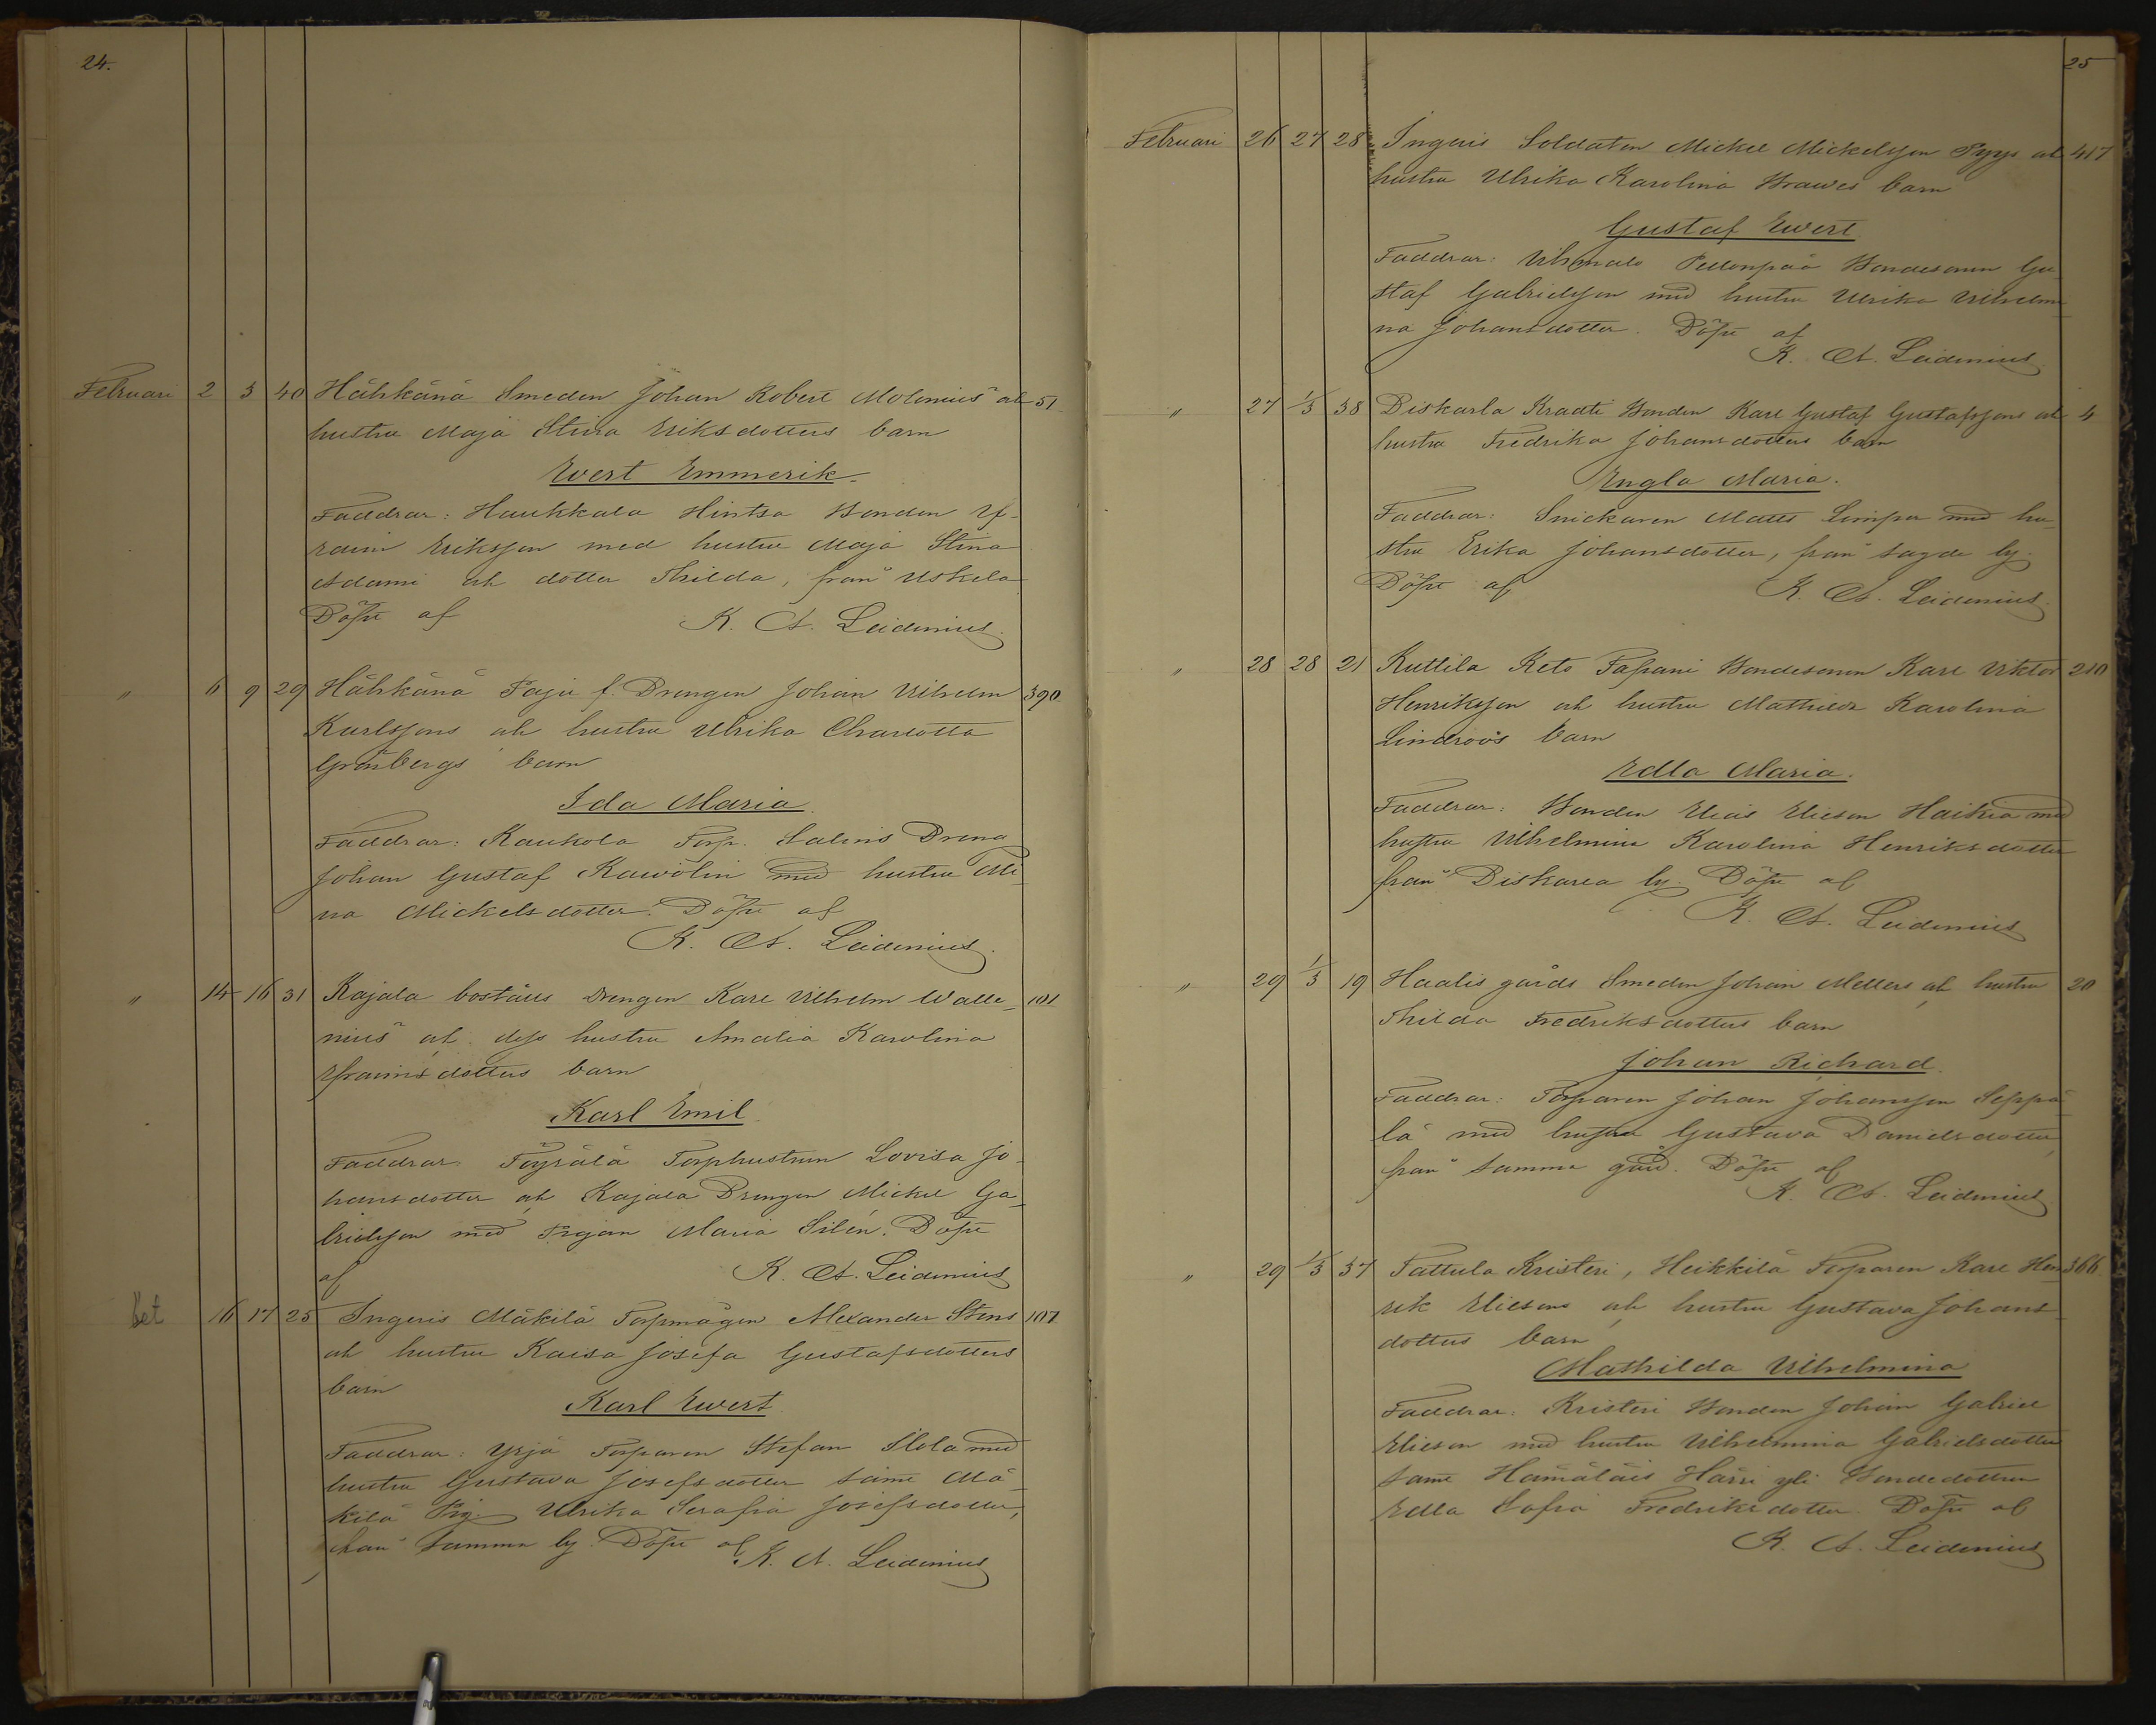 24.
Februari 2 3 40 Hähkänä Smeden Johan Robert Molenius ah 51
hustru Maja Stina Eriksdotters barn
Evert Emmerik.
Faddrar: Haukkala Hintsa Bonden Ef-
raim Eriksson med hustru Maja Stina
Adami ah dotter Thilda, från Uskela
Döpte af K. A. Leidenius.
" 6 9 29 Hähkänä Paju f. Drengen Johan Vilhelm 390
Karlssons ah hustru Ulrika Charlotta
Grönbergs barn
Ida Maria.
Faddrar: Kaukola Torp. Salmis Dreng
Johan Gustaf Kawolin med hustru Mi-
na Mickelsdotter. Döpte af
K. A. Leidenius.
" 14 16 31 Kajala boställs Drengen Karl Vilhelm Walle- 101
nius ah dess hustru Amalia Karolina
Efraimsdotters barn
Karl Emil.
Faddrar Töyrälä Torphustrun Lovisa Jo-
hansdotter ah Kajala Drengen Mickel Ga-
brielsson med Pigan Maria Silén. Döpte
af K. A. Leidenius
16 17 25 Ingeris Mäkilä Torpmågen Alexander Stens 107
ah hustru Kaisa Josefa Gustafsdotters
barn
Karl Ewert.
Faddrar: Yrjä Torparen Stefan Slola med
hustru Gustava Josefsdotter samt Mä-
kilä Pig. Ulrika Serafia Josefsdotter,
från samma by. Döpte af K. A. Leidenius
25
Februari 26 27 28 Ingeris Soldaten Mickel Mickelsson Pyys ah 417
hustru Ulrika Karolina Brawes barn
Gustaf Ewert
Faddrar: Pellonpää Bondesonen Gu-
staf Gabrielsson med hustru Ulrika Vilhelmi-
na Johansdotter. Döpte af
K. A. Leidenius
" 27 1/3 38 Piskarla Kraati Bonden Karl Gustaf Gustafssons ah 4
hustru Fredrika Johansdotters barn
Engla Maria.
Faddrar: Snickaren Matts Limper med hu-
stru Erika Johansdotter, från sagde by.
Döpte af K. A. Leidenius.
" 28 28 21 Kuttila Keto Tapani Bondesonen Karl Viktor 210
Henriksson ah hustru Mathilda Karolina
Lindroos barn
Edla Maria.
Faddrar: Bonden Elias Elieson Haikia med
hustru Vilhelmina Karolina Henriksdotter
från Piskarla by. Döpte af
K. A. Leidenius
" 29 1/3 19 Haalis gårds Smeden Johan Mellers ah hustru 20
Thilda Fredriksdotters barn
Johan Richard.
Faddrar: Torparen Johan Johansson Seppä-
lä med hustru Gustava Danielsdotter,
från samma gård. Döpte af
K. A. Leidenius
" 29 1/3 37 Tattula Kristeri, Heikkilä Torparen Karl Hen- 366
rik Eliesons ah hustru Gustava Johans-
dotters barn
Mathilda Vilhelmina
Faddrar: Kristeri Bonden Johan Gabriel
Elieson med hustru Vilhelmina Gabrielsdotter
samt Hämäläis Härri yli Bondedottren
Edla Sofia Fredriksdotter. Döpte af
K. A. Leidenius